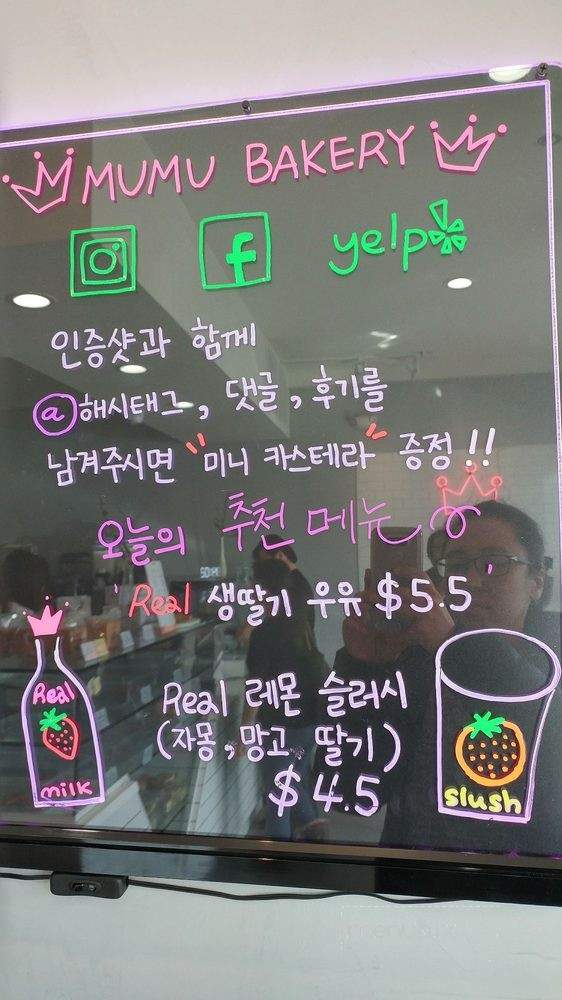 MUMU BAKERY
f yelp
인증샷과 함께
@해시태그, 댓글, 후기를
남겨주시면 "미니 카스테라" 증정!!
오늘의 추천 메뉴
'Real 생딸기 우유 $5.5'
Real 레몬 슬러시
(자몽, 망고, 딸기)
$4.5
Real
milk
slush